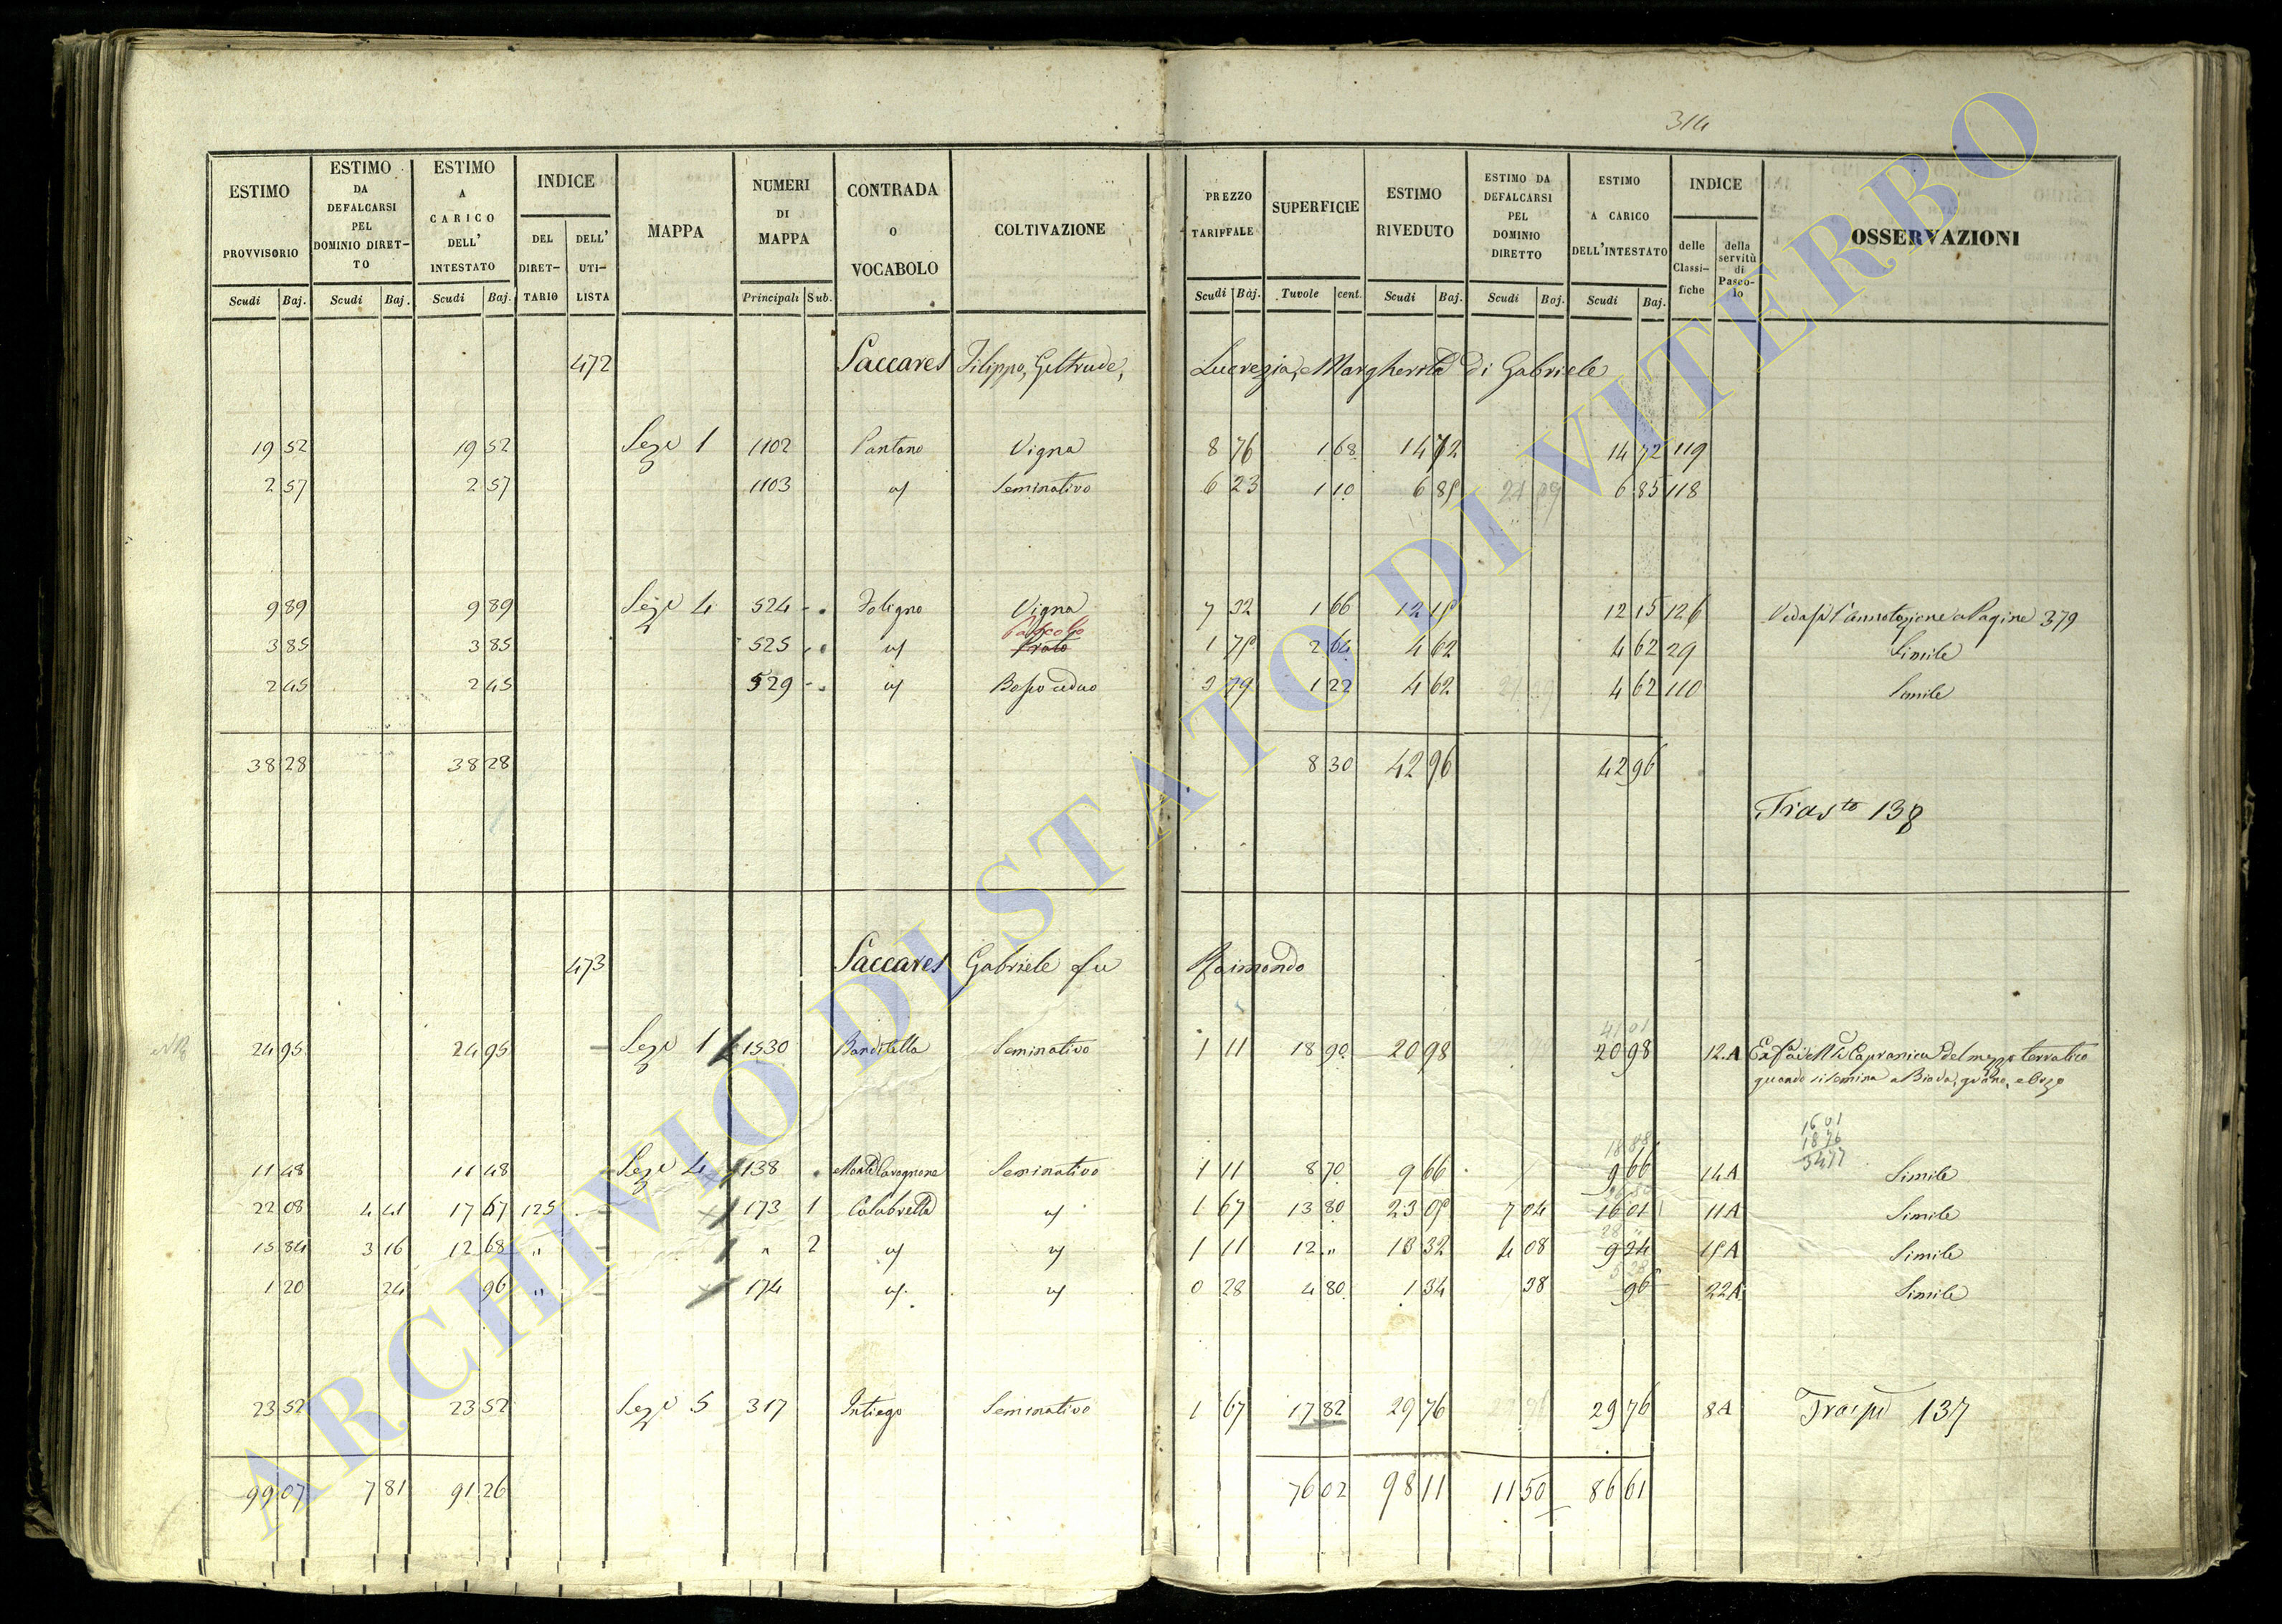 314
ESTIMO PROVVISORIO Scudi Baj.
ESTIMO DA DEFALCARSI PEL DOMINIO DIRET- TO Scudi Baj.
ESTIMO A CARICO DELL' INTESTATO Scudi Baj.
INDICE DEL DIRET- TARIO DELL' UTI- LISTA
MAPPA
NUMERI DI MAPPA Principali Sub.
CONTRADA O VOCABOLO
COLTIVAZIONE
PREZZO TARIFFALE Scudi Baj.
SUPERFICIE Tuvole cent.
ESTIMO RIVEDUTO Scudi Baj.
ESTIMO DA DEFALCARSI PEL DOMINIO DIRETTO Scudi Boj.
ESTIMO A CARICO DELL'INTESTATO Scudi Baj.
INDICE delle Classi- fiche della servitù di Pasco- lo
OSSERVAZIONI
472 Saccares Filippo, Geltrude, Lucrezia, e Margherita di Gabriele
19 52 19 52 Seze 1 1102 Pantano Vigna 8 76 1 68 14 72 14 72 119
2 57 2 57 1103 Seminativo 6 23 1 10 6 85 6 85 118
9 89 9 89 Seze 4 524 Foligno Vigna 7 32 1 66 12 15 12 15 126 Vedasi l'annotazione a Pagine 379
Pascolo
3 85 3 85 525 Prato 1 75 2 64 4 62 4 62 29 Simile
2 45 2 45 529 Bosco ceduo 3 79 1 22 4 62 4 62 110 Simile
38 28 38 28 8 30 42 96 42 96
Trasto 138
473 Saccares Gabriele fu Raimondo
41 01
24 95 24 95 Seze 1 1530 Banditella Seminativo 1 11 18 90 20 98 20 98 12.A Capranica del mezzo terratico
quando si semina a Biada, grano, e
16 01
18 76
34 77
11 48 11 48 Seze 4 138 Seminativo 1 11 8 70 9 66 9 66 14A Simile
22 08 4 41 17 67 125 173 1 Calabrella 1 67 13 80 23 05 7 04 16 01 11A Simile
15 84 3 16 12 68 " " 2 1 11 12 " 13 32 4 08 9 24 15A Simile
1 20 24 96 " 174 0 28 4 80 1 34 38 96 22A Simile
23 52 23 52 Seze 5 317 Intiego Seminativo 1 67 17 82 29 76 29 76 8A 137
99 07 7 81 91 26 76 02 98 11 11 50 86 61
ARCHIVIO DI STATO DI VITERBO